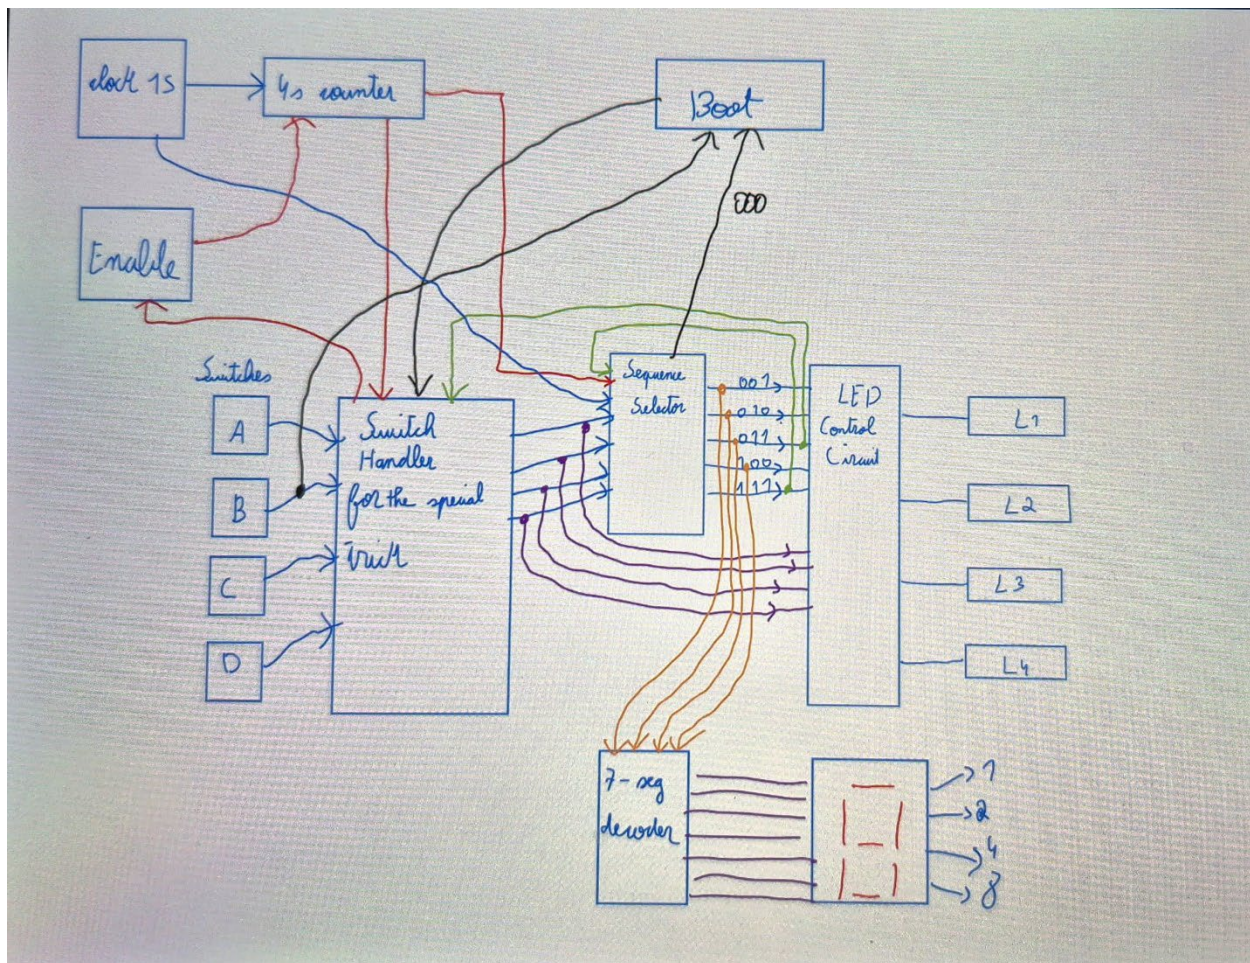 clock 1s
4s counter
Boot
000
Enable
Switches
A
B
C
D
Switch
Handler
for the special
trick
Sequence
Selector
001
010
011
100
111
LED
Control
Circuit
L1
L2
L3
L4
7-seg
decoder
1
2
4
8